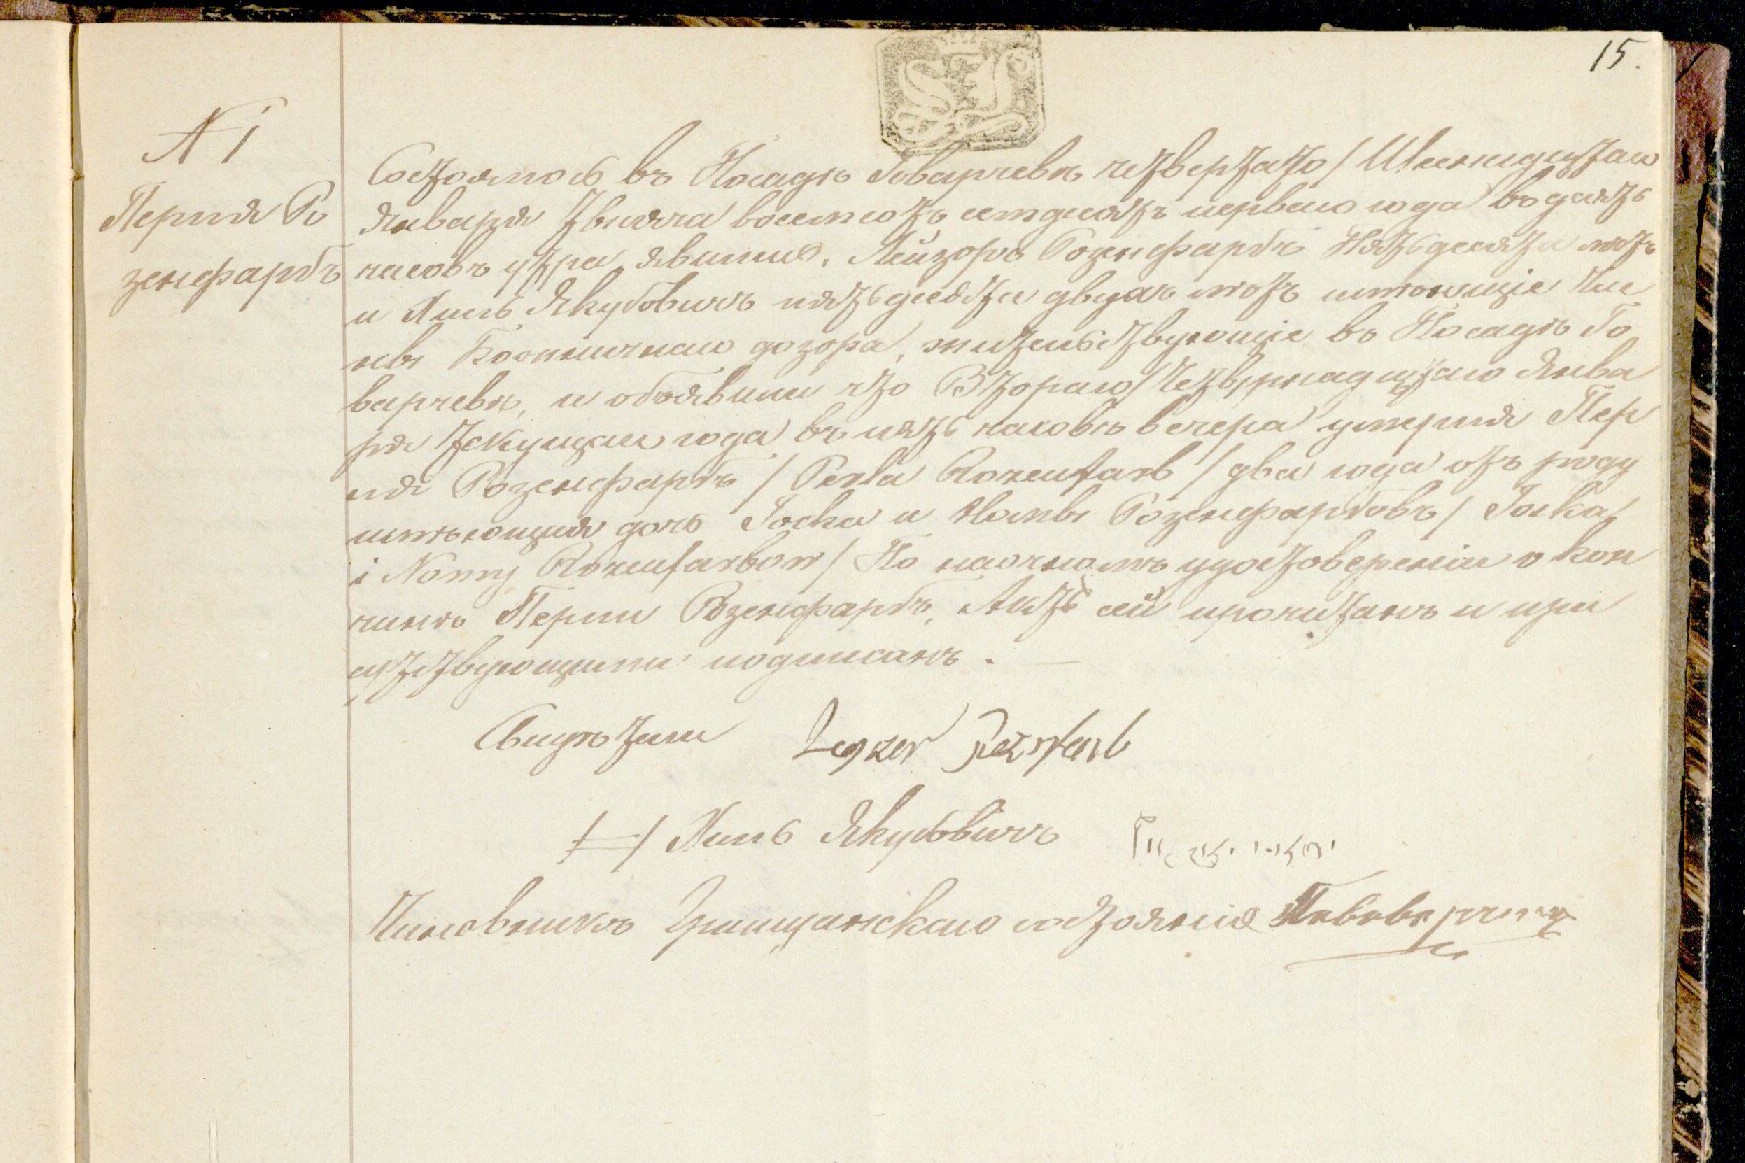 15.
N 1
Перля Ро
зенфарбъ
Состоялось въ Посадѣ Говарчевѣ четвертаго / Шестнадцатаго
Января тысяча восемсотъ семдесятъ перваго года въ десять
часовъ утра явились, Лейзоръ Розенфарбъ пятьдесяти лѣтъ
и Хиль Якубовичъ пятьдесяти двухъ лѣтъ имѣющіе Чле
ны Божничнаго дозора, жительствующіе въ Посадѣ Го
варчевѣ, и объявили что Втораго / Четырнадцатаго Янва
ря текущаго года въ пять часовъ вечера умерла Пер
ля Розенфарбъ / Perla Rozenfarb / два года отъ роду
имѣющая дочь Іоска и Номы Розенфарбовъ / Joska
i Nomy Rozenfarbow / По наочномъ удостовереніи о кон
чинѣ Перли Розенфарбъ, Актъ сей прочитанъ и при
сутствующими подписанъ. —
Свидѣтели Leyzor Rozenfarb
/—/ Хиль Якубовичъ
Чиновникъ Гражданскаго состоянія